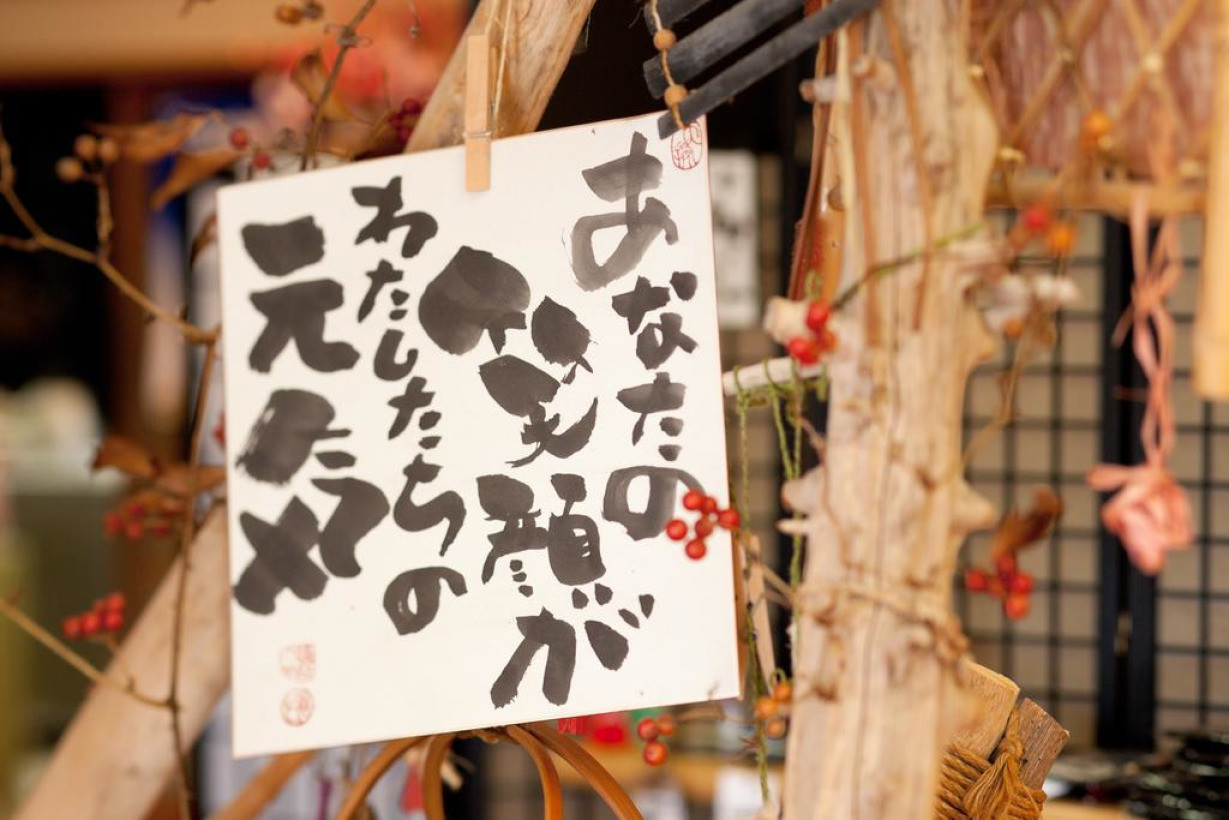 あなたの
笑顔が
わたしたちの
元気